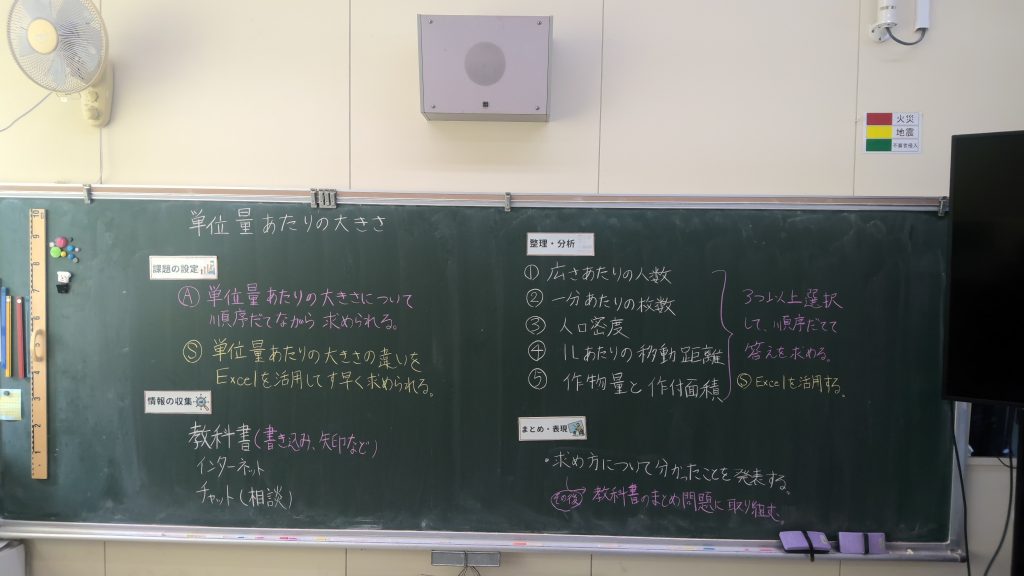 火災
地震
不審者侵入
単位量あたりの大きさ
課題の設定
Ⓐ 単位量あたりの大きさについて
順序だてながら 求められる。
Ⓢ 単位量あたりの大きさの違いを
Excelを活用してす早く求められる。
情報の収集
教科書(書き込み、矢印など)
インターネット
チャット(相談)
整理・分析
① 広さあたりの人数
② 一分あたりの枚数
③ 人口密度
④ 1Lあたりの移動距離
⑤ 作物量と作付面積
3つ以上選択
して、順序だてて
答えを求める。
Ⓢ Excelを活用する。
まとめ・表現
・求め方について分かったことを発表する。
その後 教科書のまとめ問題に取り組む。